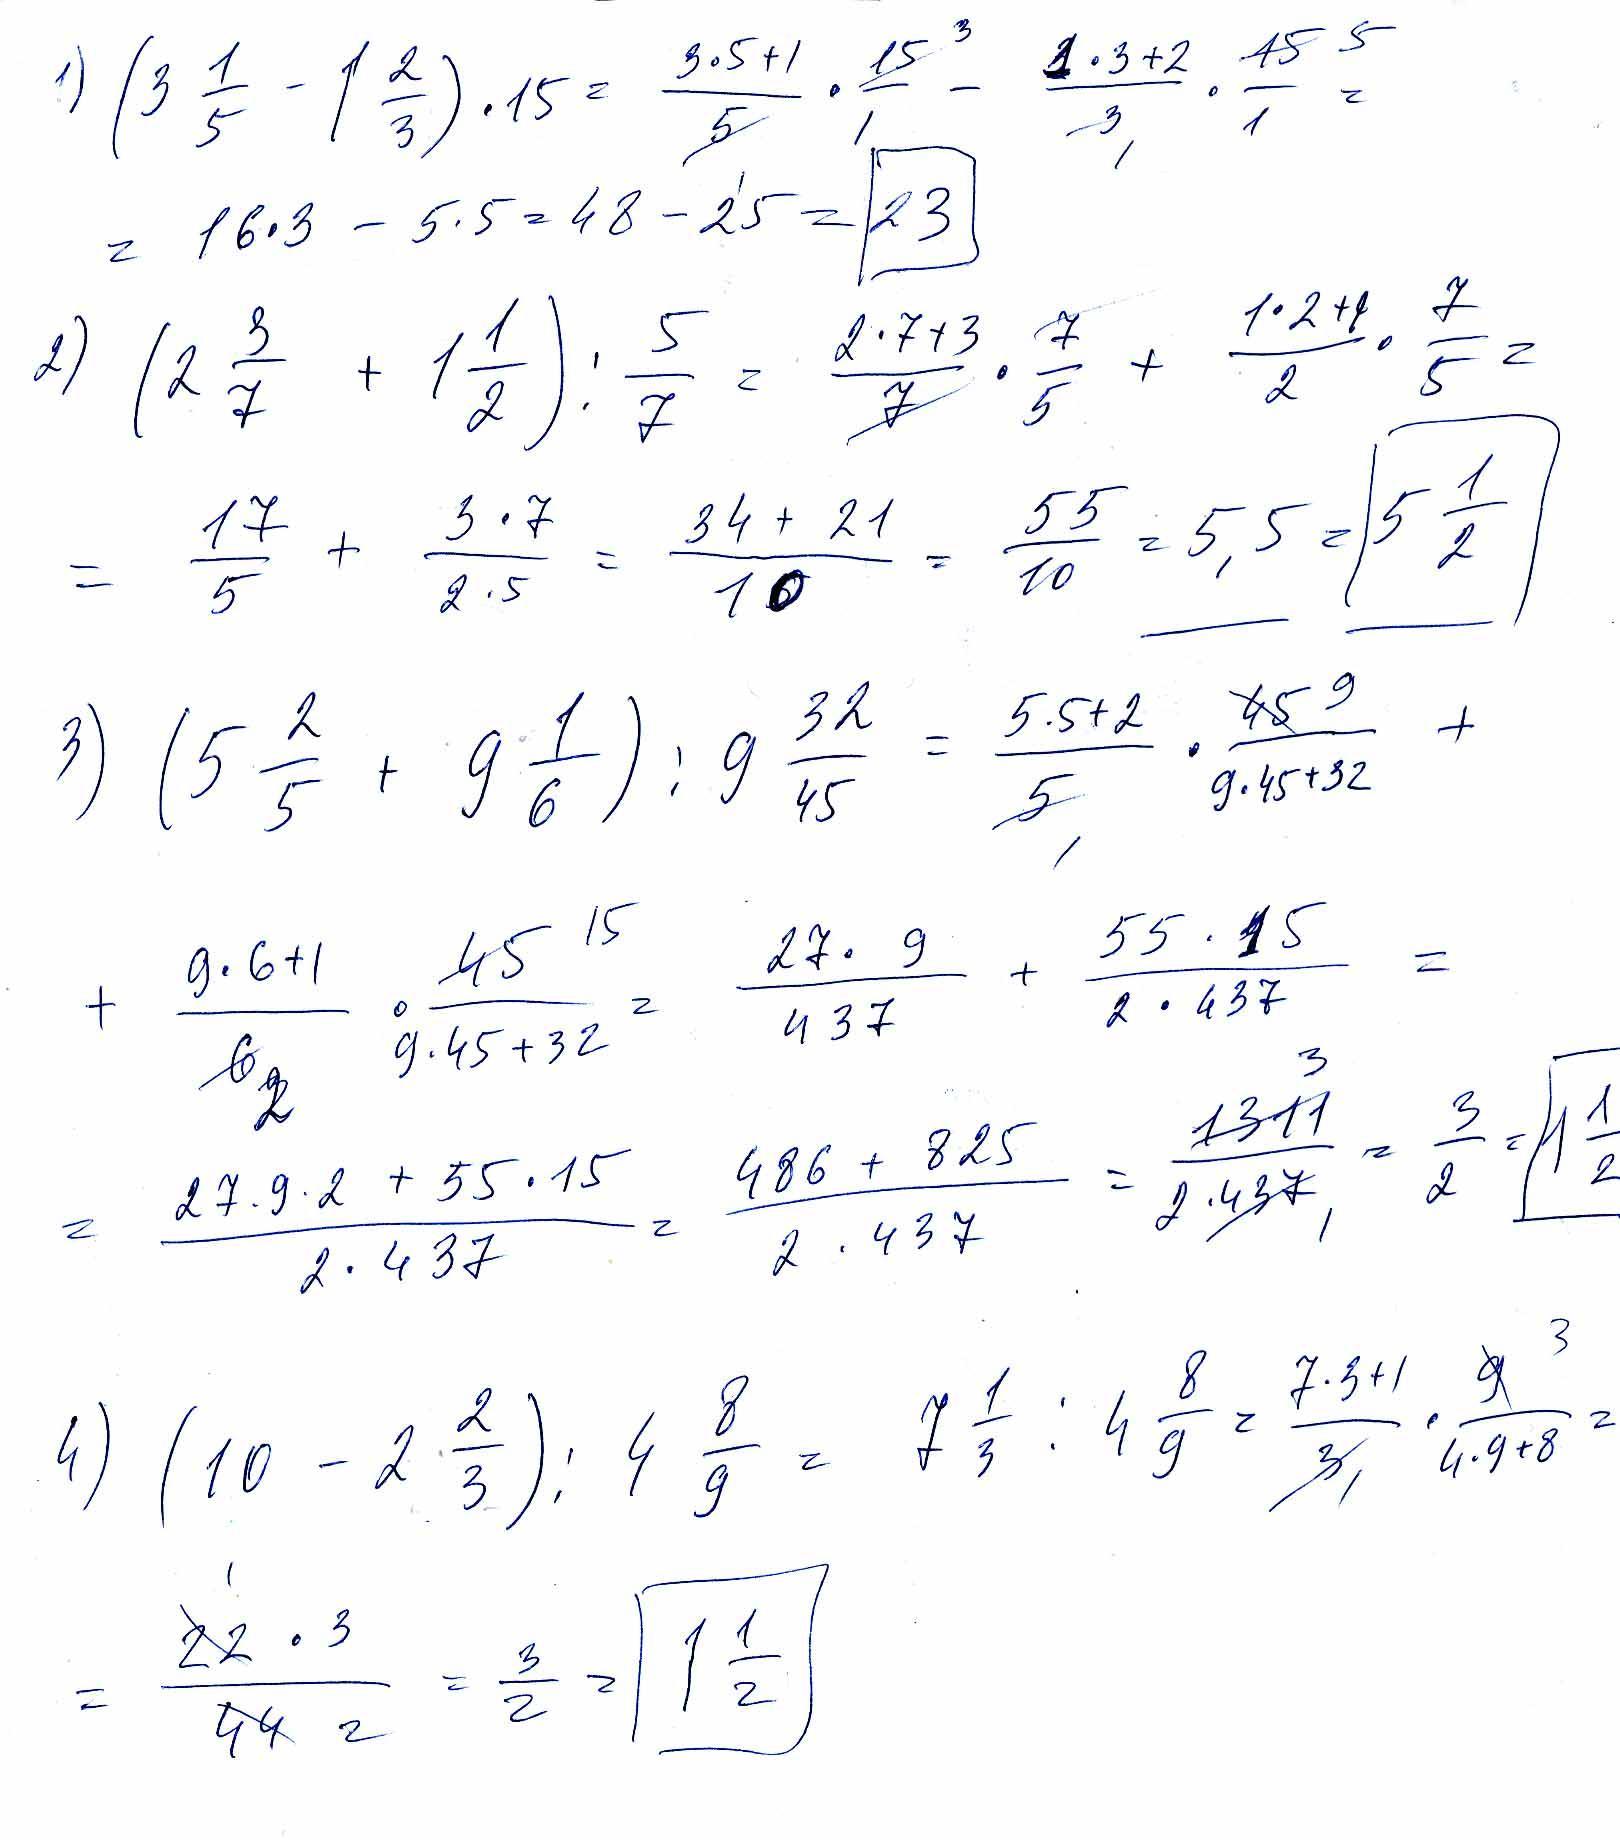 1) (3 1/5 - 1 2/3) · 15 = (3·5+1)/5 · 15/1 3 - (1·3+2)/3 1 · 15/1 5 =
= 16·3 - 5·5 = 48 - 25 = 23
2) (2 3/7 + 1 1/2) : 5/7 = (2·7+3)/7 · 7/5 + (1·2+1)/2 · 7/5 =
= 17/5 + (3·7)/(2·5) = (34+21)/10 = 55/10 = 5,5 = 5 1/2
3) (5 2/5 + 9 1/6) : 9 32/45 = (5·5+2)/5 1 · 45 9/(9·45+32) +
+ (9·6+1)/6 2 · 45 15/(9·45+32) = (27·9)/437 + (55·15)/(2·437) =
= (27·9·2 + 55·15)/(2·437) = (486+825)/(2·437) = 1311 3/(2·437 1) = 3/2 = 1 1/2
4) (10 - 2 2/3) : 4 8/9 = 7 1/3 : 4 8/9 = (7·3+1)/3 1 · 9 3/(4·9+8) =
= (22 1 · 3)/(44 2) = 3/2 = 1 1/2